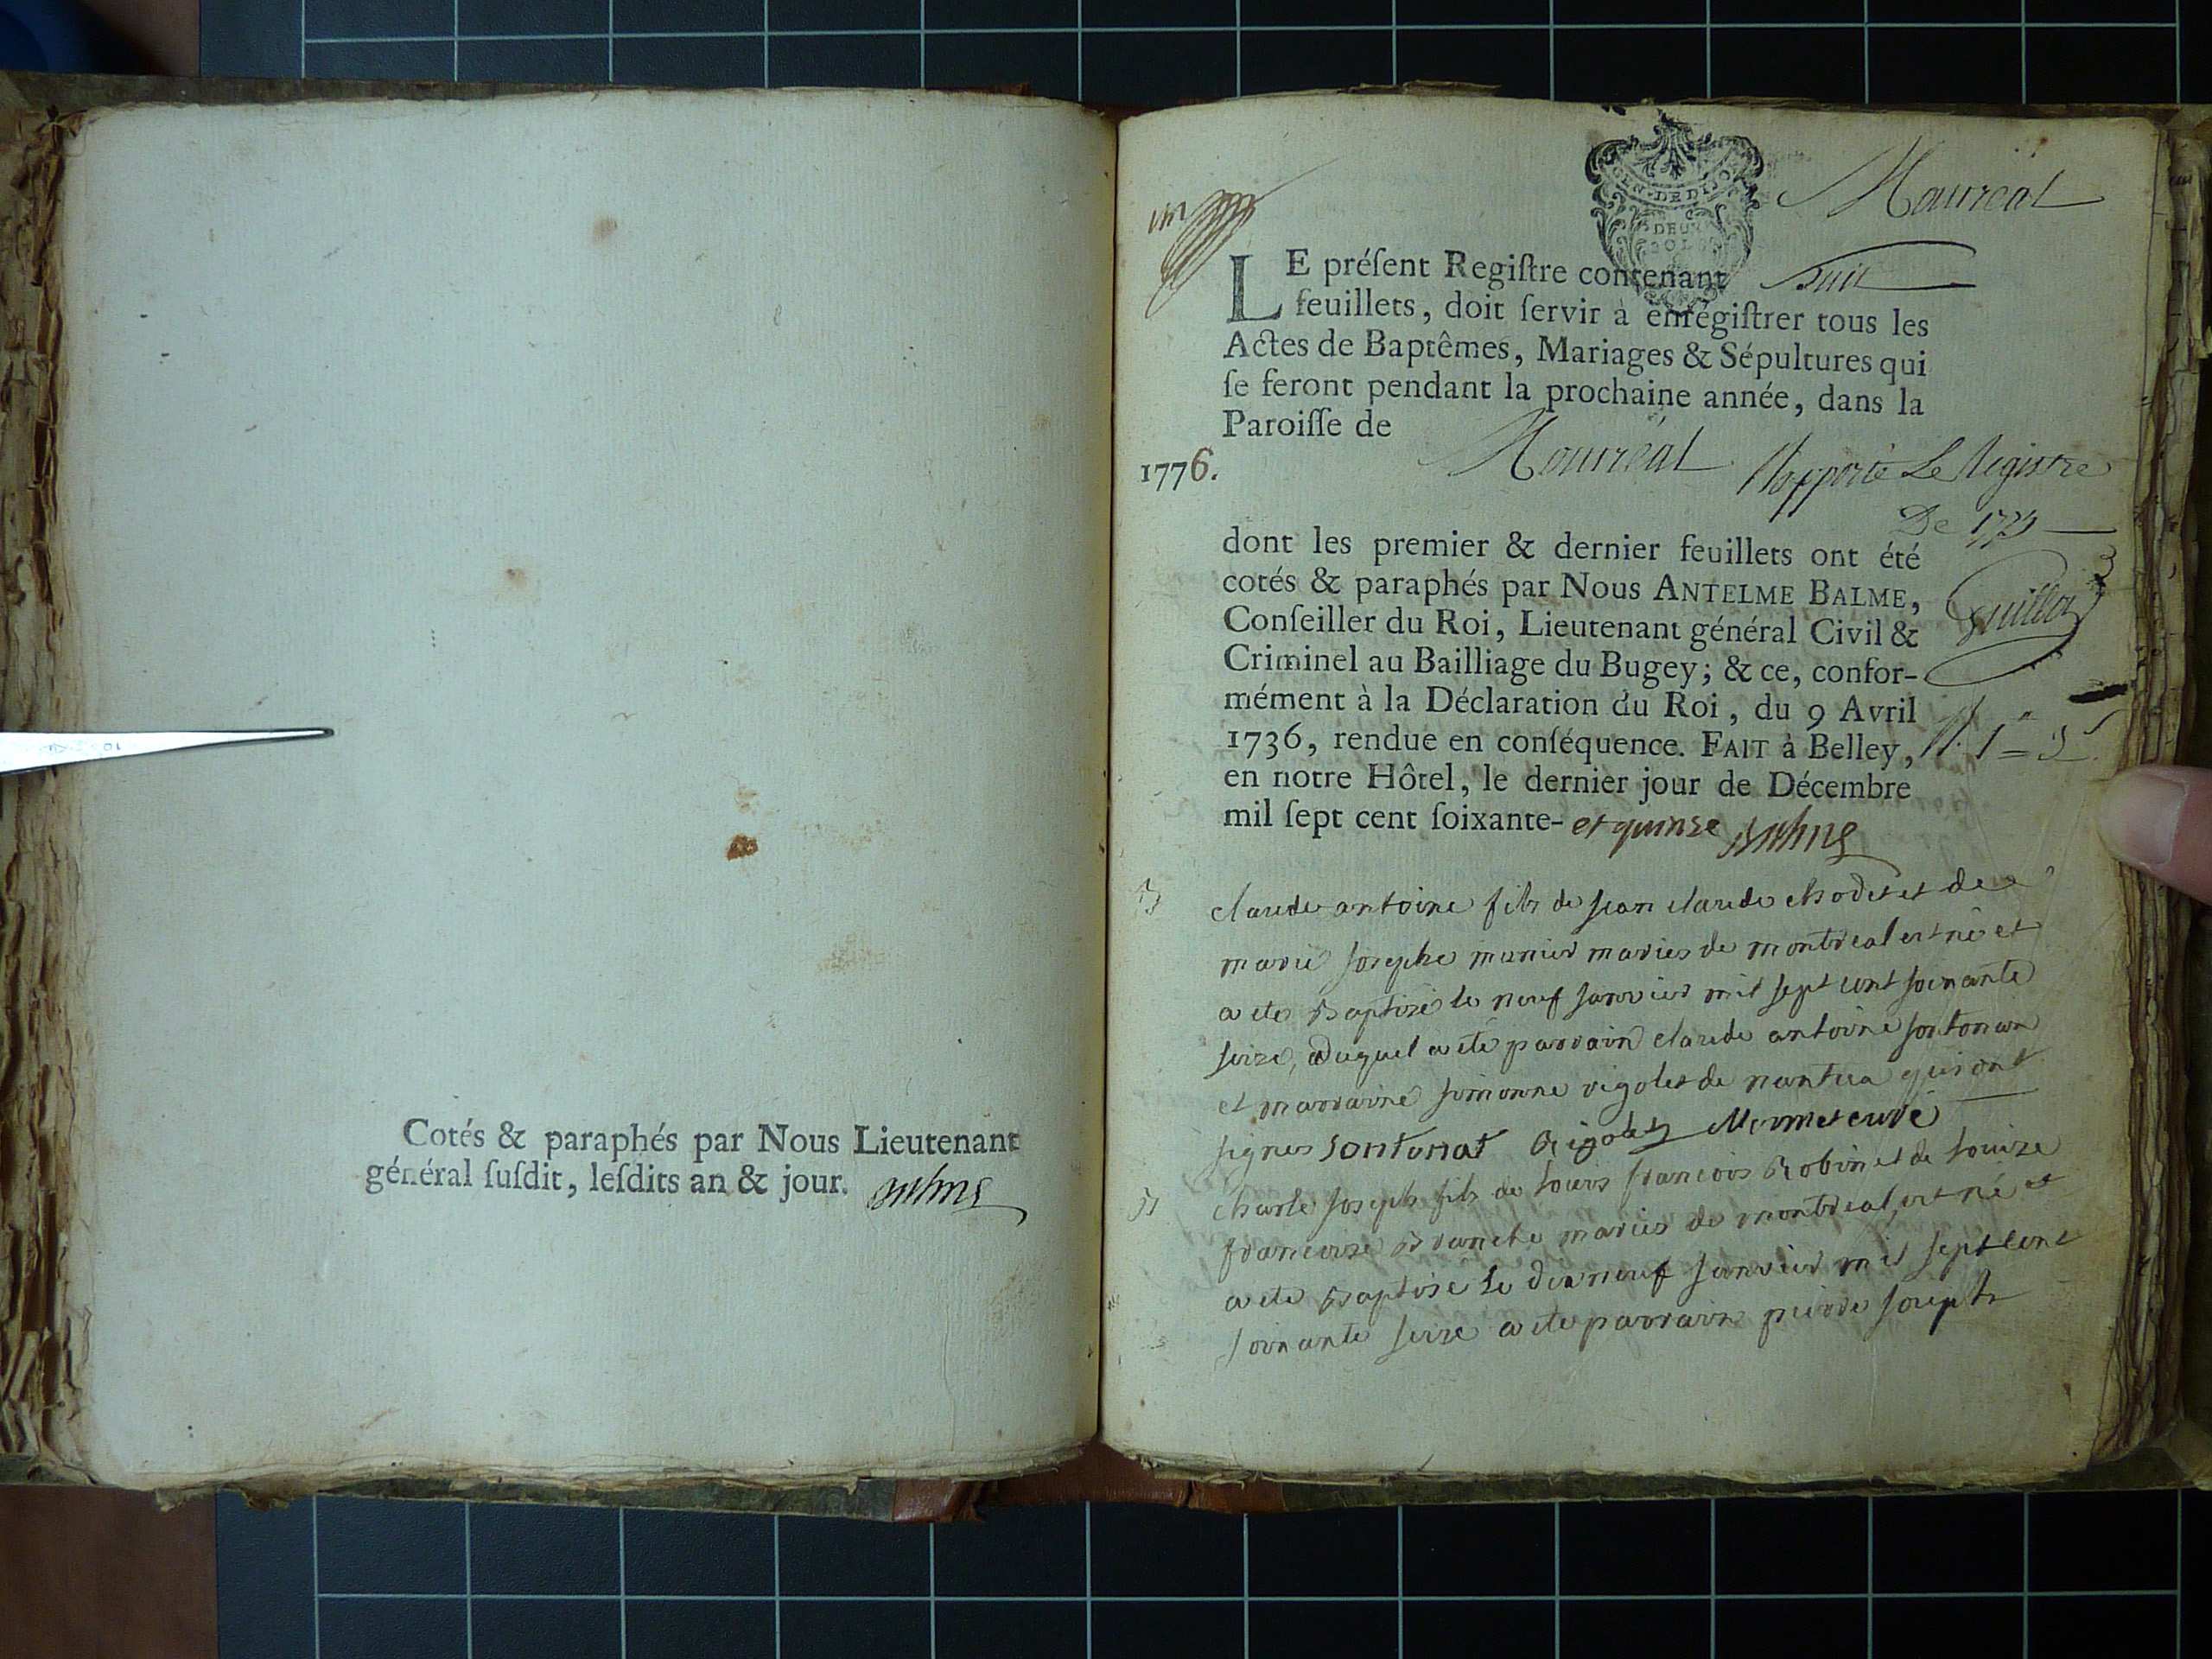 Cotés & paraphés par Nous Lieutenant
général ſuſdit, leſdits an & jour. Balme
GEN. DE DIJON
DEUX
SOLS
Montreal
un
LE préſent Regiſtre contenant huit
feuillets, doit ſervir à enrégiſtrer tous les
Actes de Baptêmes, Mariages & Sépultures qui
ſe feront pendant la prochaine année, dans la
Paroiſſe de Montréal
1776.
Rapporté Le Registre
De 1775
dont les premier & dernier feuillets ont été
cotés & paraphés par Nous ANTELME BALME,
Conſeiller du Roi, Lieutenant général Civil &
Criminel au Bailliage du Bugey; & ce, confor-
mément à la Déclaration du Roi, du 9 Avril
1736, rendue en conſéquence. FAIT à Belley,
en notre Hôtel, le dernier jour de Décembre
mil ſept cent ſoixante- et quinze Balme
Guillot
B claude antoine fils de jean claude chodet et de
marie josephe munier mariés de montreal est né et
a ete Baptisé le neuf janvier mil sept cent soixante
seize, duquel a été parrain claude antoine sontonan
et marraine simonne rigolet de nantua qui ont
signes sontonat Rigolet Mermet curé
B charle joseph fils de louis francois Robin et de louize
francoise Branche mariés de montreal, est né et
a ete Baptisé le dix neuf janvier mil sept cent
soixante seize a ete parrain pierre joseph